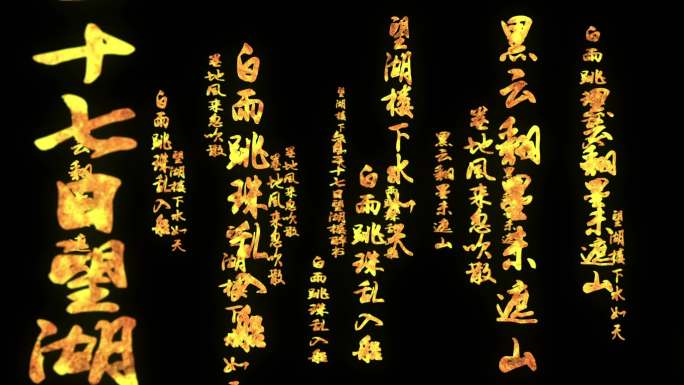 十七日望湖
白雨跳珠乱入船
望湖楼下水如天
卷地风来忽吹散
白雨跳珠乱入船
望湖楼下如
卷地风来忽吹散
卷地风来忽吹散
白雨跳珠乱入船
望湖楼下
六月二十七日望湖楼醉书
白雨跳珠乱入船
望湖楼下水如天
黑云翻墨未遮山
卷地风来忽吹散
黑云翻墨未遮山
白雨跳
黑云翻墨未遮山
望湖楼下水如天